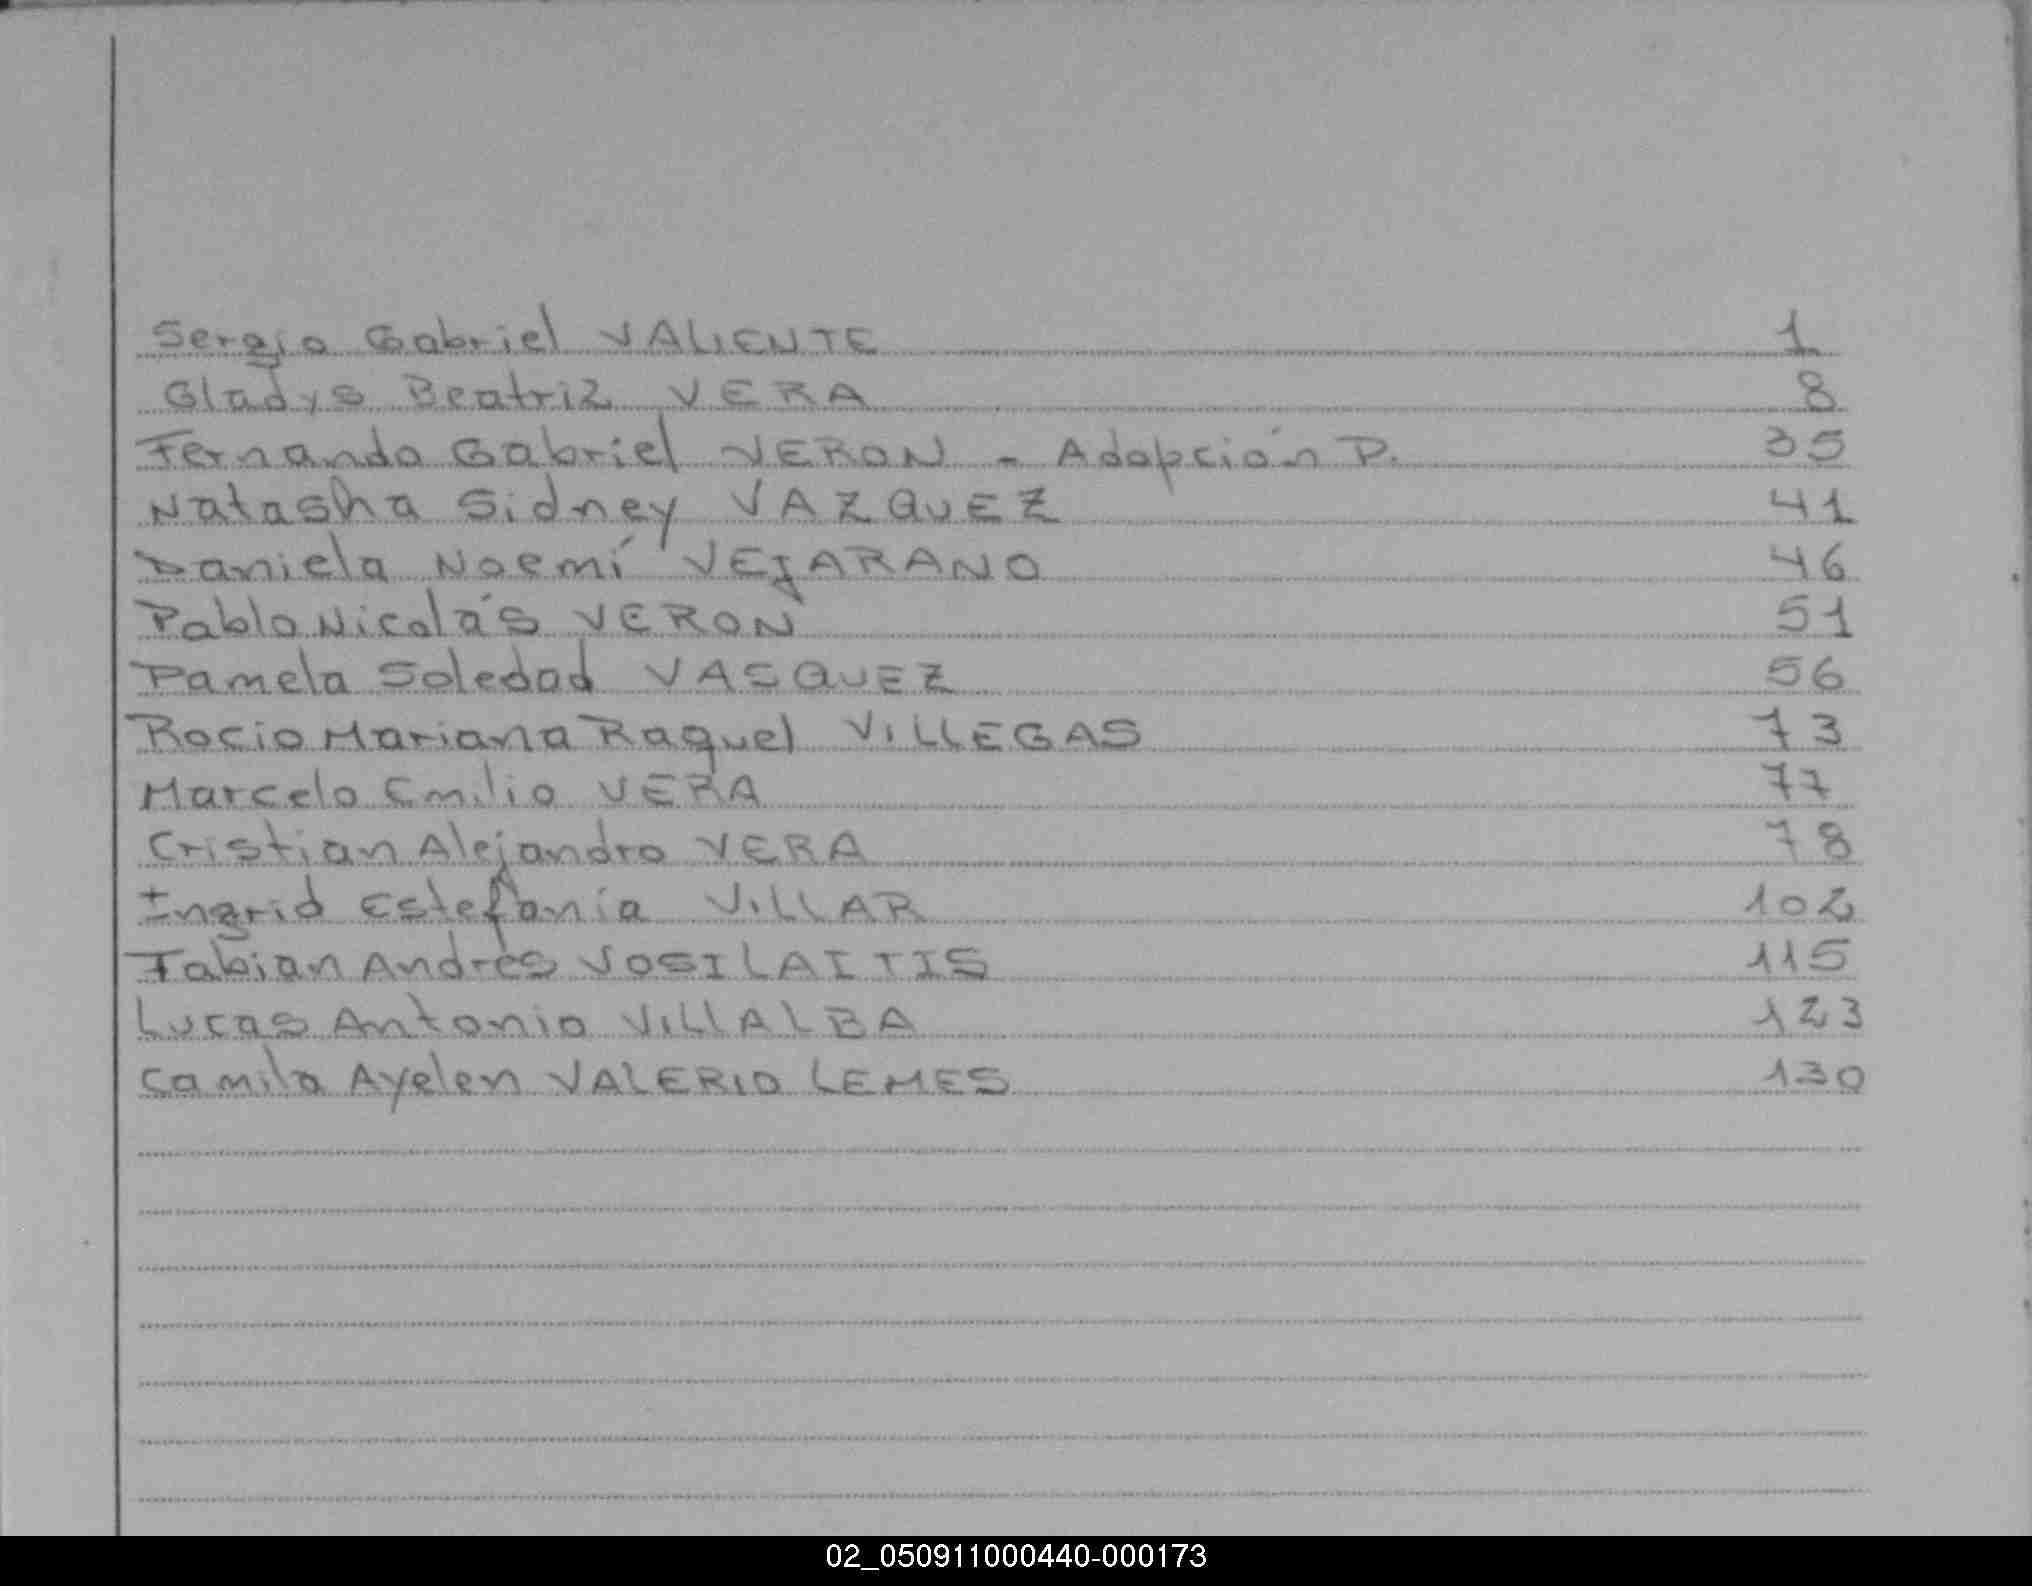 Sergio Gabriel VALIENTE 1
Gladys Beatriz VERA 8
Fernando Gabriel VERON - Adopción P. 35
Natasha Sidney VAZQUEZ 41
Daniela Noemí VEJARANO 46
Pablo Nicolás VERON 51
Pamela Soledad VASQUEZ 56
Rocio Mariana Raquel VILLEGAS 73
Marcelo Emilio VERA 77
Cristian Alejandro VERA 78
Ingrid Estefanía VILLAR 102
Fabian Andrés VOSILAITIS 115
Lucas Antonio VILLALBA 123
Camila Ayelen VALERIO LEMES 130
02_050911000440-000173